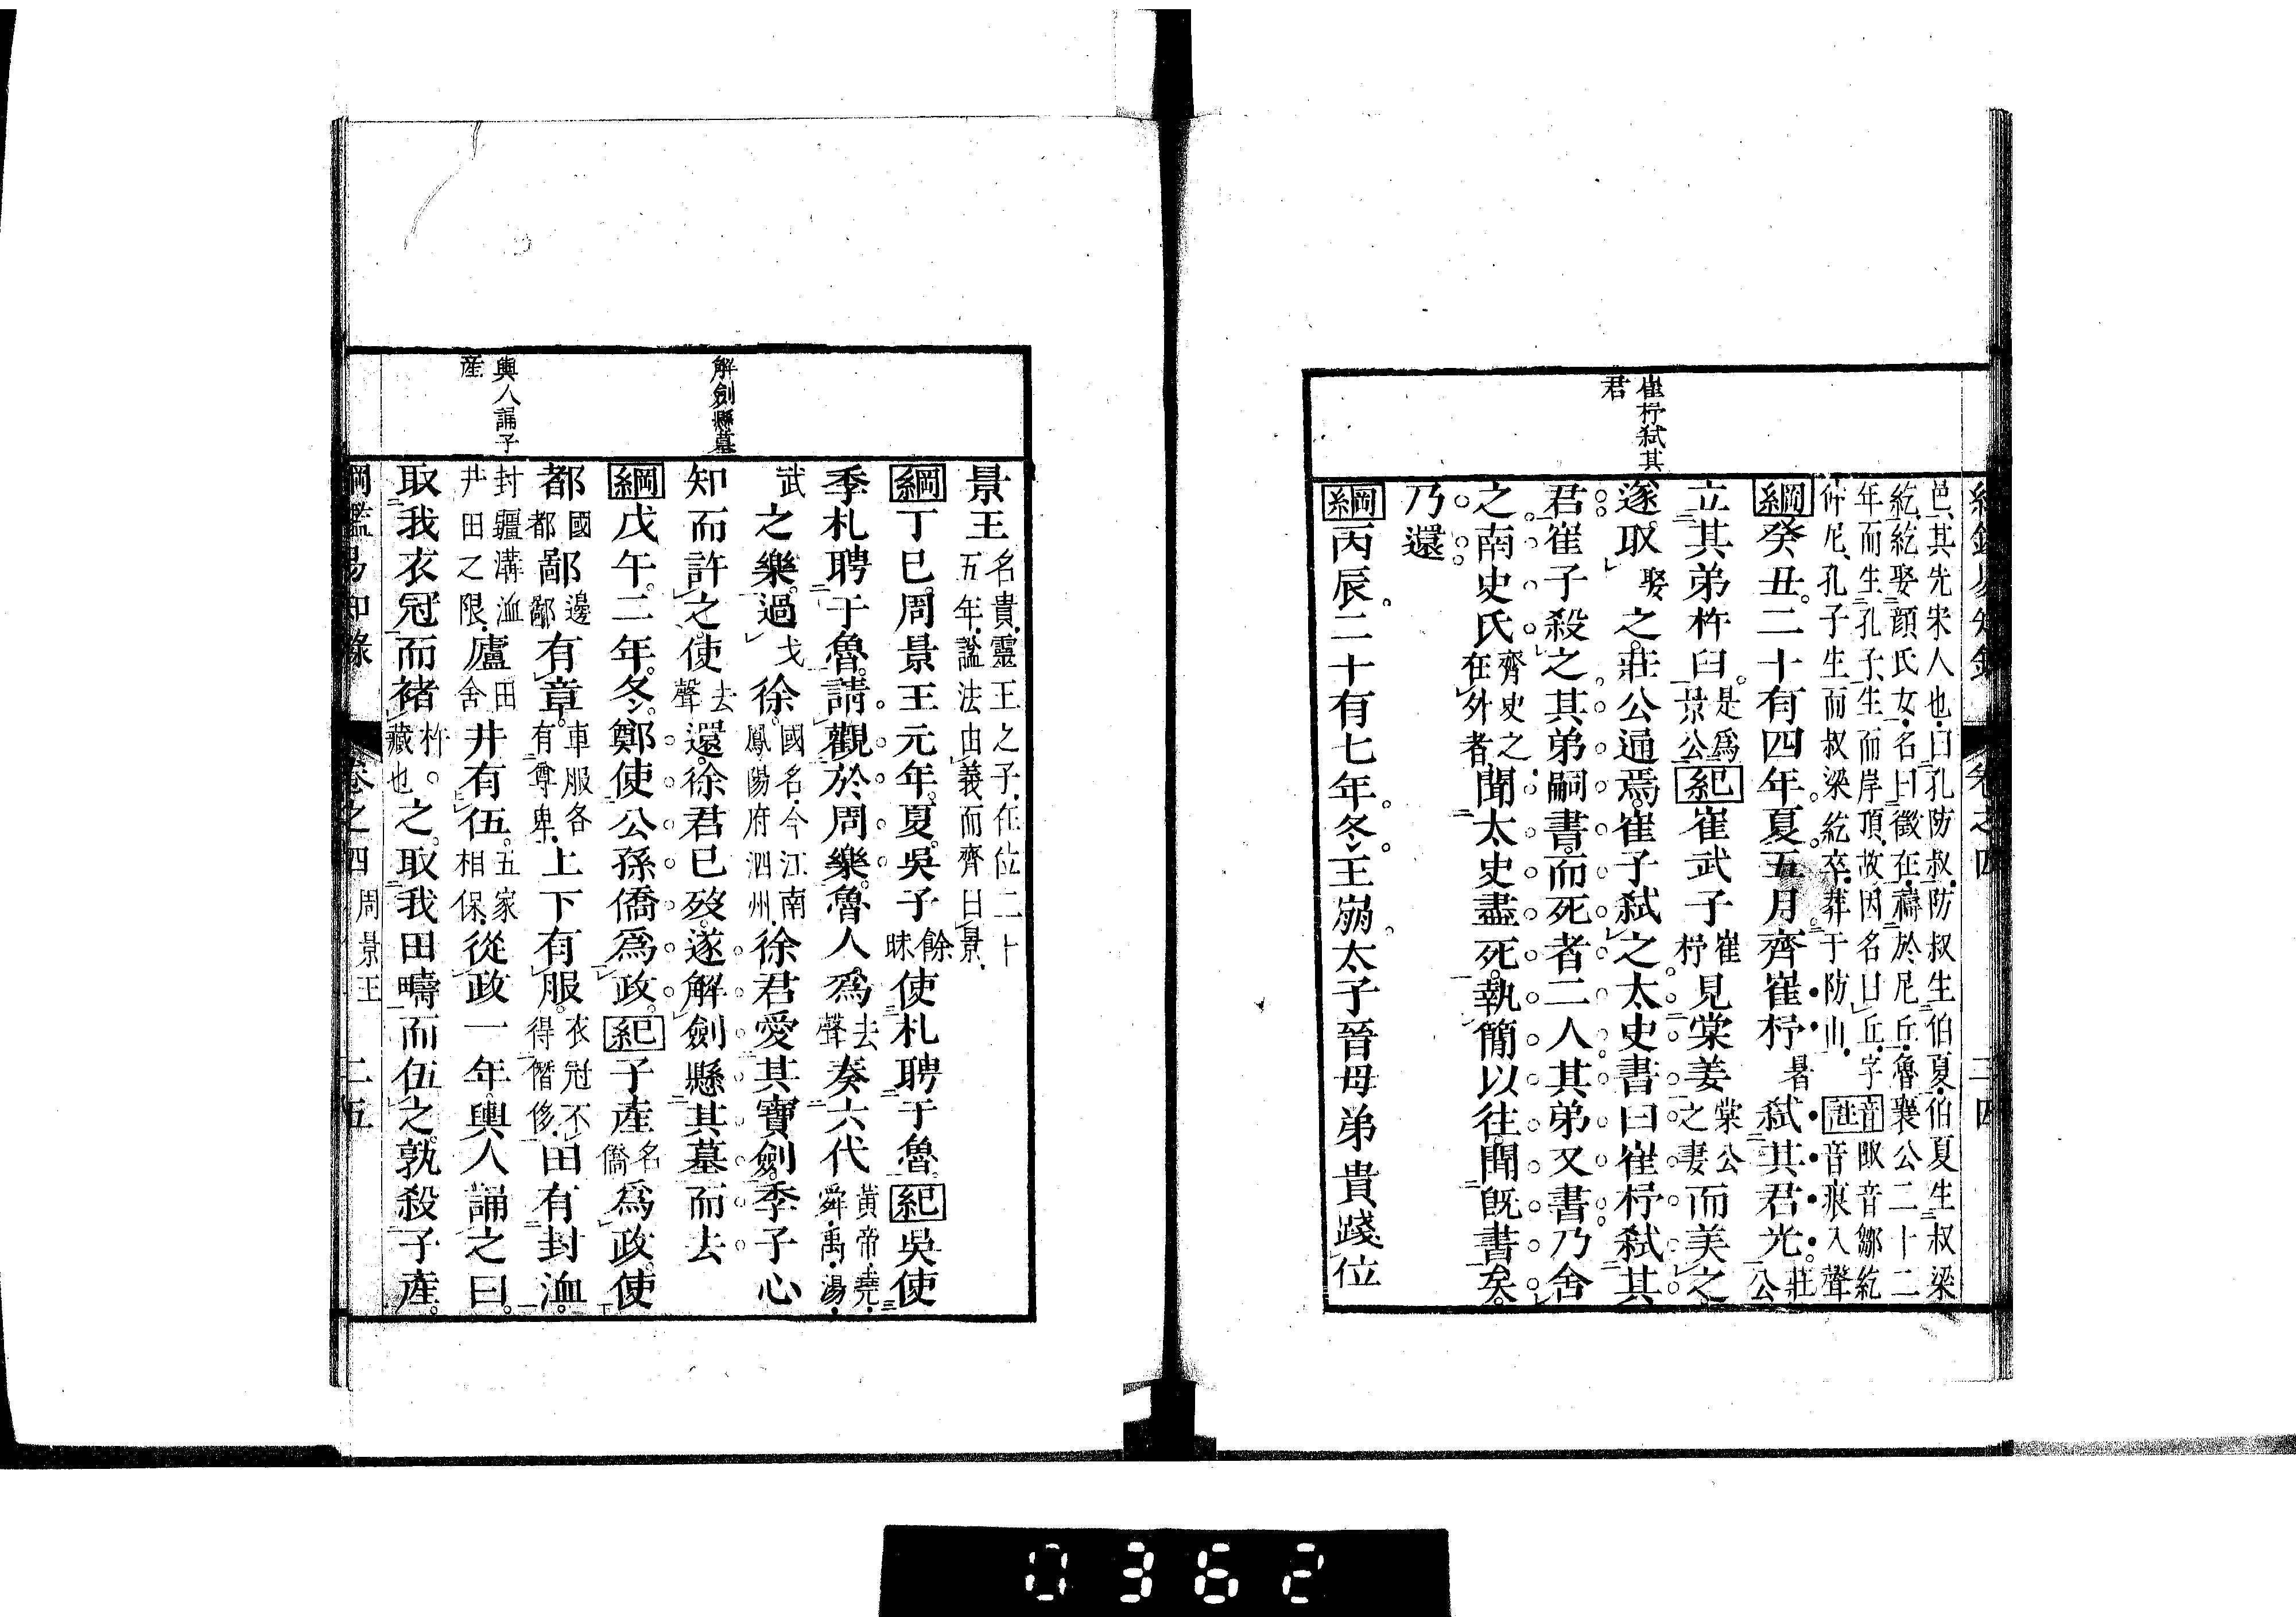 崔杼弑其
君
邑其先宋人也曰孔防叔防叔生伯夏伯夏生叔梁
紇紇娶顔氏女名曰徵在禱於尼丘魯襄公二十二
年而生孔子生而岸頂故因名曰丘字
仲尼孔子生而叔梁紇卒葬于防山
音陬音鄒紇
註音痕入聲
綱癸丑二十有四年夏五月齊崔杼暑弑其君光莊公
立其弟杵臼是爲景公紀崔武子崔杼見棠姜棠公之妻而美之
遂取娶之莊公通焉崔子弑之太史書曰崔杼弑其
君崔子殺之其弟嗣書而死者二人其弟又書乃舍
之南史氏齊史之在外者聞太史盡死執簡以往聞既書矣
乃還
綱丙辰二十有七年冬王崩太子晉母弟貴踐位
卷之四
解劍縣墓
輿人誦子
産
景王名貴靈王之子在位二十五年謚法由義而齊曰景
綱丁巳周景王元年夏吳子餘昧使札聘于魯紀吳使
季札聘于魯請觀於周樂魯人爲去聲奏六代黃帝堯舜禹湯
武之樂過戈徐國名今江南鳳陽府泗州徐君愛其寶劍季子心
知而許之使去聲還徐君已歿遂解劍懸其墓而去
綱戊午二年冬鄭使公孫僑爲政紀子產名僑爲政使
都國都鄙邊鄙有章車服各有尊卑上下有服衣冠不得僭侈田有封洫
封疆溝洫井田之限廬田舍井有伍五家相保從政一年輿人誦之曰
取我衣冠而褚杵藏也之取我田疇而伍之孰殺子產
綱鑑易知錄 卷之四 周景王 二五
0362